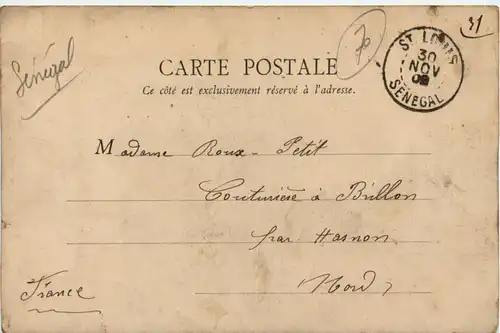 Sénégal
70
31
ST LOUIS
30
NOV
02
SENEGAL
CARTE POSTALE
Ce côté est exclusivement réservé à l'adresse.
Madame Roux-Petit
Couturière à Brillon
par Hasnon
Nord
France